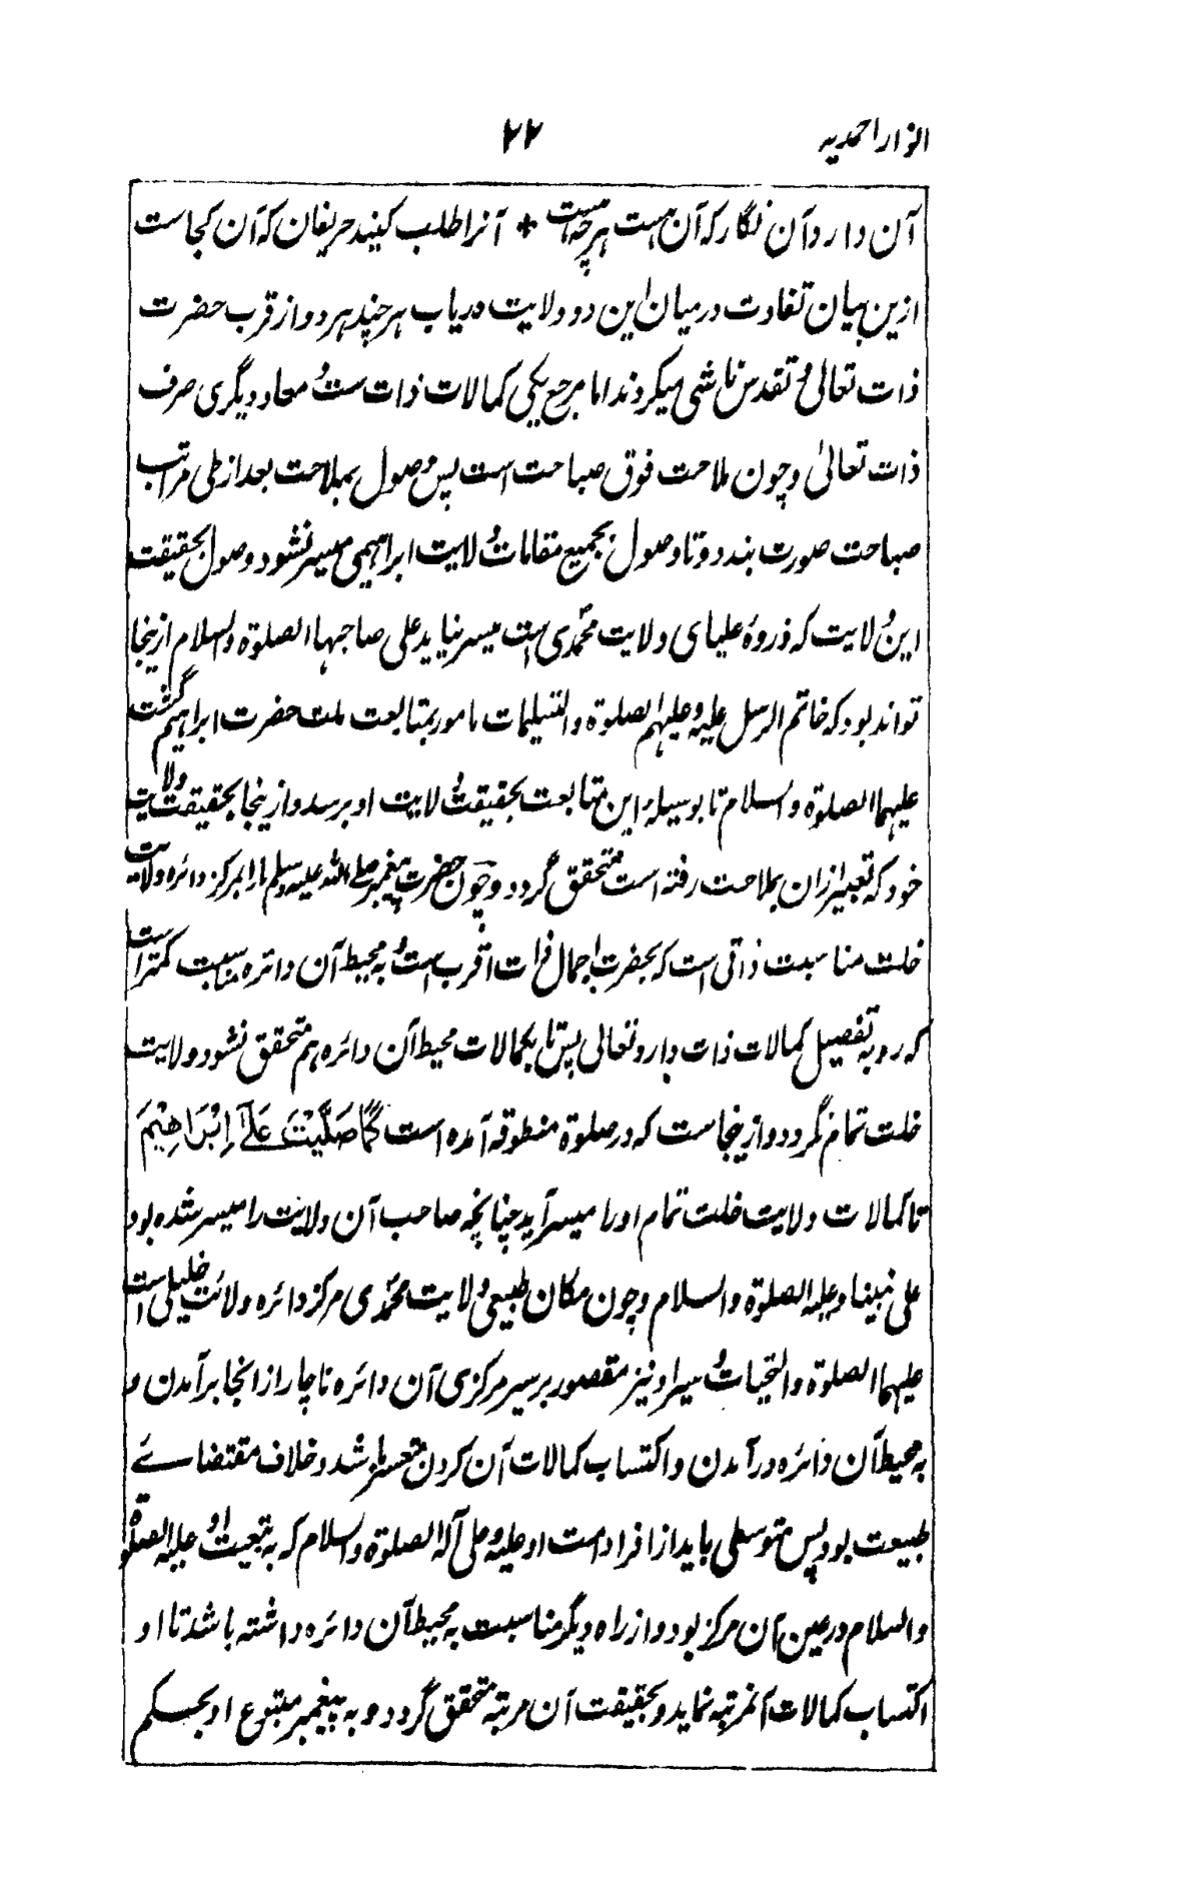 انوار احمدیہ
۲۲
آن دارد آن نگار کہ آن ہست ہرچہ ہست * آنرا طلب کنید حریفان کہ آن کجاست
ازین بیان تفاوت درمیان این دو ولایت دریاب ہرچند ہر دو از قرب حضرت
ذات تعالی و تقدس ناشی میگردند اما مرجع یکی کمالات ذات ست و معاد دیگری صرف
ذات تعالیٰ و چون ملاحت فوق صباحت است پس وصول بملاحت بعد از طی مراتب
صباحت صورت بندد و تا وصول بجمیع مقامات ولایت ابراہیمی میسر نشود وصول بحقیقت
این ولایت کہ ذروہ علیای ولایت محمدی است میسر نیاید علی صاحبہا الصلوۃ والسلام ازینجا
تواند بود کہ خاتم الرسل علیہ و علیہم الصلوۃ والتسلیمات مامور بمتابعت ملت حضرت ابراہیم گشت
علیہما الصلوۃ والسلام تا بوسیلہ این متابعت بحقیقت ولایت او برسد و ازینجا بحقیقت ولایت
خود کہ تعبیر ازان بملاحت رفتہ است متحقق گردد و چون حضرت پیغمبر صلی اللہ علیہ وسلم ما را بمرکز دائرہ ولایت
خلت مناسبت ذاتی است کہ بحضرت اجمال ذات اقرب است و بہ محیط آن دائرہ مناسبت کمتر است
کہ رو بہ تفصیل کمالات ذات دارد تعالی پس تا بکمالات محیط آن دائرہ ہم متحقق نشود ولایت
خلت تمام نگردد و ازینجاست کہ در صلوۃ منطوقہ آمدہ است كَمَا صَلَّيْتَ عَلَىٰ إِبْرَاهِيْمَ
تا کمالات ولایت خلت تمام او را میسر آید چنانچہ صاحب آن ولایت را میسر شدہ بود
علی نبینا و علیہ الصلوۃ والسلام و چون مکان طبیعی ولایت محمدی مرکز دائرہ ولایت خلیلی است
علیہما الصلوۃ والتحیات و سیر او نیز مقصور بر سیر مرکزی آن دائرہ ناچار ازانجا برآمدن و
بہ محیط آن دائرہ درآمدن و اکتساب کمالات آن کردن متعسر باشد و خلاف مقتضاے
طبیعت بود پس متوسطی باید از افراد امت او علیہ و علی آلہ الصلوۃ والسلام کہ بہ تبعیت او علیہ الصلوۃ
والسلام در عین آن مرکز بود و از راہ دیگر مناسبت بہ محیط آن دائرہ داشتہ باشد تا او
اکتساب کمالات آنمرتبہ نماید و بحقیقت آن مرتبہ متحقق گردد و بہ پیغمبر متبوع او بحکم